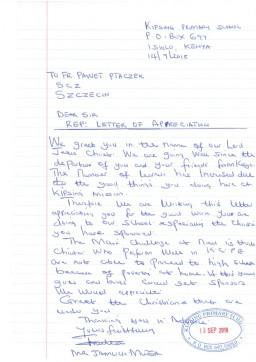 KIPSING PRIMARY SCHOOL
P.O. BOX 697
ISIOLO, KENYA
14/9/2018
TO FR. PAWEŁ PTACZEK
SCZ
SZCZECIN
DEAR SIR
REF: LETTER OF APPRECIATION
We greet you in the name of our Lord
Jesus Christ. We are going Well since the
departure of you and your friends from Kenya.
The Number of learners has increased due
to the good things you doing here at
KIPSING Mission.
Therefore We are Writing this letter
appreciating you for the good Work your are
doing to our School especially the Children
you have sponsored.
The Main Challenge at Now is that
Children Who Perform Well in K.C.P.E
are not able to proceed to high School
because of poverty at home. If this
goes and ones could get sponsors
We Would appreciate.
Greet the Christians that are
under you.
Thanking you in Advance
Yours faithfully
PRIMARY SCHOOL
13 SEP 2018